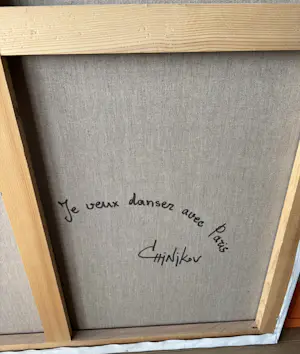 Je veux danser avec Paris
CHiNiKov